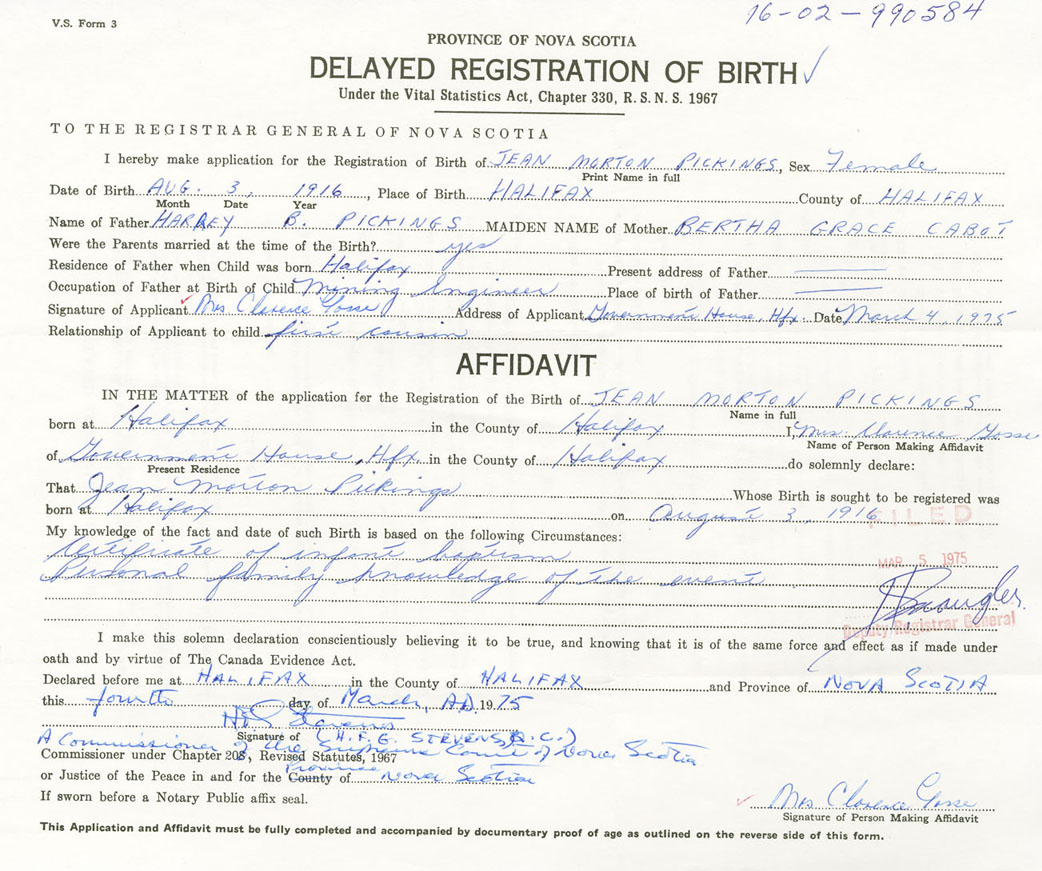 V.S. Form 3
16-02-990584
PROVINCE OF NOVA SCOTIA
DELAYED REGISTRATION OF BIRTH ✓
Under the Vital Statistics Act, Chapter 330, R.S.N.S. 1967
TO THE REGISTRAR GENERAL OF NOVA SCOTIA
I hereby make application for the Registration of Birth of JEAN MORTON PICKINGS, Sex Female
Print Name in full
Date of Birth AUG. 3, 1916, Place of Birth HALIFAX County of HALIFAX
Month Date Year
Name of Father HARVEY B. PICKINGS MAIDEN NAME of Mother BERTHA GRACE CABOT
Were the Parents married at the time of the Birth? yes
Residence of Father when Child was born Halifax Present address of Father
Occupation of Father at Birth of Child Mining Engineer Place of birth of Father
Signature of Applicant Mrs Clarence Gosse Address of Applicant Government House, Hfx. Date March 4, 1975
Relationship of Applicant to child first cousin
AFFIDAVIT
IN THE MATTER of the application for the Registration of the Birth of JEAN MORTON PICKINGS
Name in full
born at Halifax in the County of Halifax I, Mrs. Clarence Gosse
Name of Person Making Affidavit
of Government House, Hfx. in the County of Halifax do solemnly declare:
Present Residence
That Jean Morton Pickings Whose Birth is sought to be registered was
born at Halifax on August 3, 1916
FILED
My knowledge of the fact and date of such Birth is based on the following Circumstances:
Certificate of infant baptism
MAR 5 1975
Personal family knowledge of the event
Deputy Registrar General
I make this solemn declaration conscientiously believing it to be true, and knowing that it is of the same force and effect as if made under
oath and by virtue of The Canada Evidence Act.
Declared before me at HALIFAX in the County of HALIFAX and Province of NOVA SCOTIA
this fourth day of March, A.D. 1975
H.F.G. Stevens
Signature of (H.F.G. STEVENS, Q.C.)
A Commissioner of the Supreme Court of Nova Scotia
Commissioner under Chapter 203, Revised Statutes, 1967
Province
or Justice of the Peace in and for the County of Nova Scotia
If sworn before a Notary Public affix seal.
Mrs Clarence Gosse
Signature of Person Making Affidavit
This Application and Affidavit must be fully completed and accompanied by documentary proof of age as outlined on the reverse side of this form.